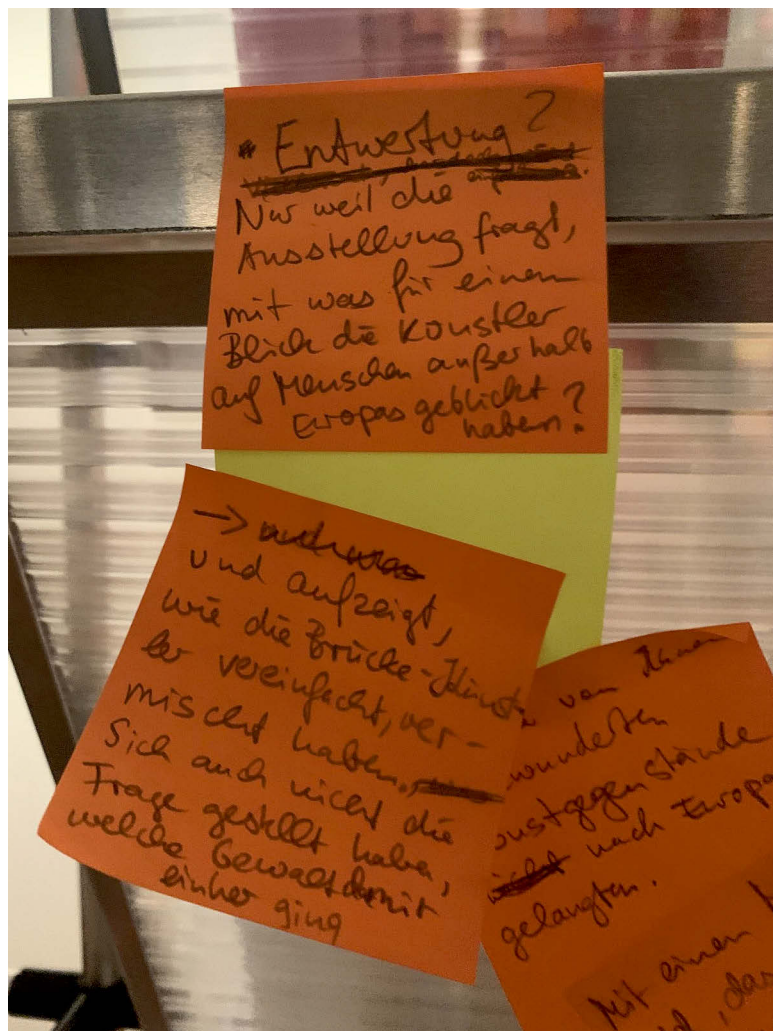 * Entwertung?
Nur weil die
Ausstellung fragt,
mit was für einem
Blick die Künstler
auf Menschen außerhalb
Europas geblickt
haben?
→
und aufzeigt,
wie die Brücke-Künst-
ler vereinfacht, ver-
mischt haben.
Sich auch nicht die
Frage gestellt haben,
welche Gewalt damit
einher ging
von ihnen
wunderten
unstgegenstände
nach Europa
gelangten.
Mit einem
, das